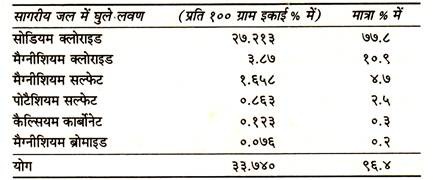 सागरीय जल में घुले लवण (प्रति १०० ग्राम इकाई % में) मात्रा % में
सोडियम क्लोराइड २७.२१३ ७७.८
मैग्नीशियम क्लोराइड ३.८७ १०.९
मैग्नीशियम सल्फेट १.६५८ ४.७
पोटैशियम सल्फेट ०.८६३ २.५
कैल्सियम कार्बोनेट ०.१२३ ०.३
मैग्नीशियम ब्रोमाइड ०.०७६ ०.२
योग ३३.७४० ९६.४